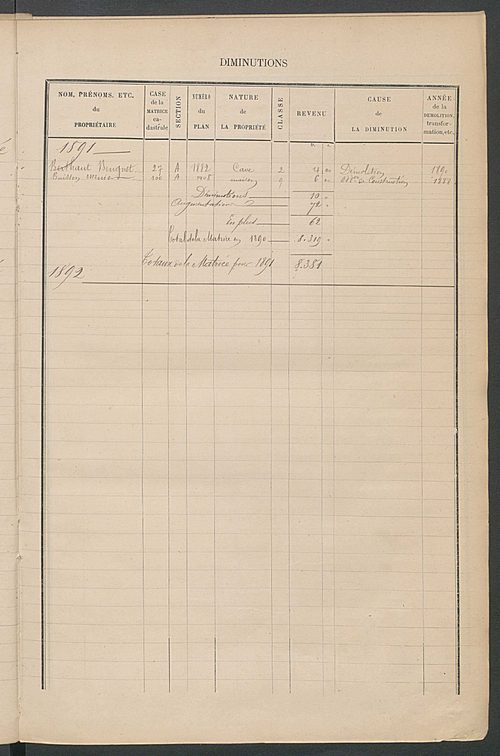 DIMINUTIONS
NOM, PRÉNOMS, ETC. du PROPRIÉTAIRE
CASE de la MATRICE ca- dastrale
SECTION
NUMÉRO du PLAN
NATURE de LA PROPRIÉTÉ
CLASSE
REVENU
CAUSE de LA DIMINUTION
ANNÉE de la DÉMOLITION, transfor- mation, etc.
1891
27 A 1882 Cave 2 4 Démolition 1890
A maison 6 Construction
Diminutions 10
Augmentation 72
En plus 62
Total de la Matrice en 1890 8.319
Totaux de la Matrice pour 1891 8.381
1892